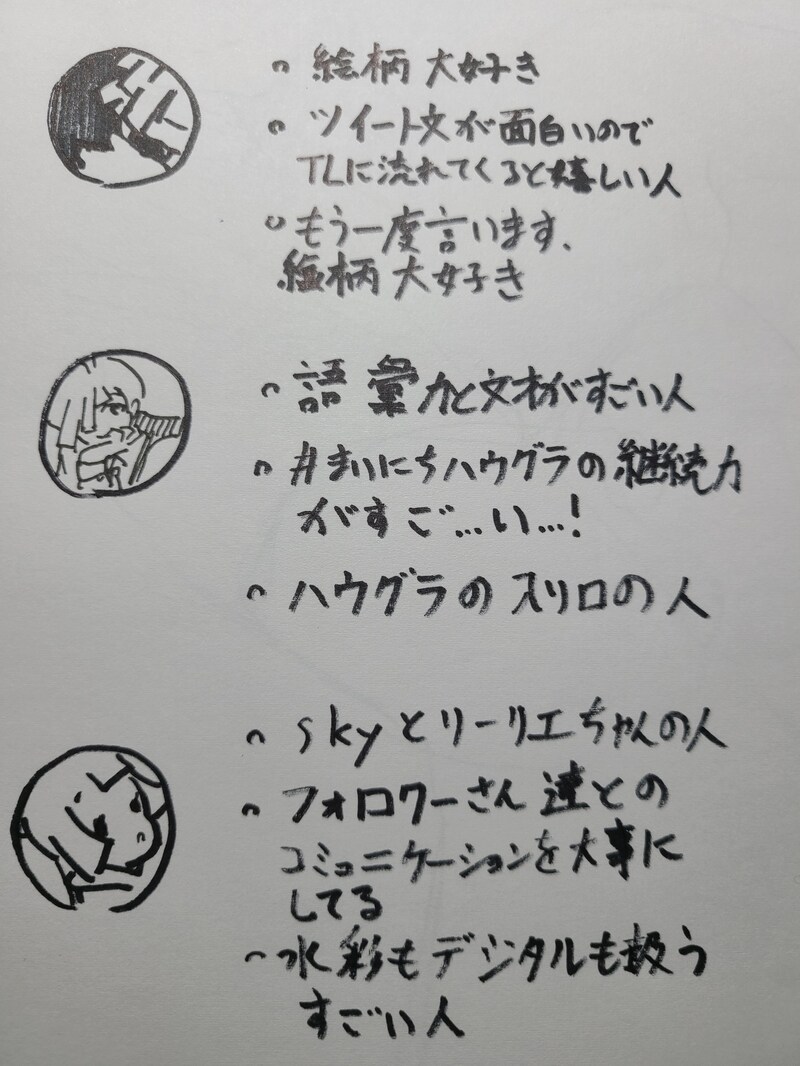 絵柄 大好き
ツイート文が面白いので
TLに流れてくると嬉しい人
もう一度言います、
絵柄 大好き
語彙力と文才がすごい人
#まいにちハウグラの継続力
がすご…い…!
ハウグラの入り口の人
skyとリーリエちゃんの人
フォロワーさん達との
コミュニケーションを大事に
してる
水彩もデジタルも扱う
すごい人